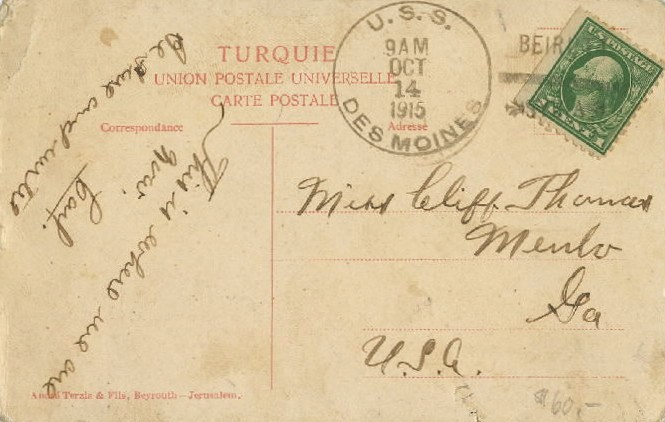 TURQUIE
UNION POSTALE UNIVERSELLE
CARTE POSTALE
Correspondance
Adresse
U.S.S.
9AM
OCT
14
1915
DES MOINES
BEIR
U.S. POSTAGE
This is where we are
now.
Be sure and write
Carl.
Miss Cliff Thomas
Menlo
Ga
U.S.A.
André Terzis & Fils, Beyrouth – Jerusalem.
$60.-